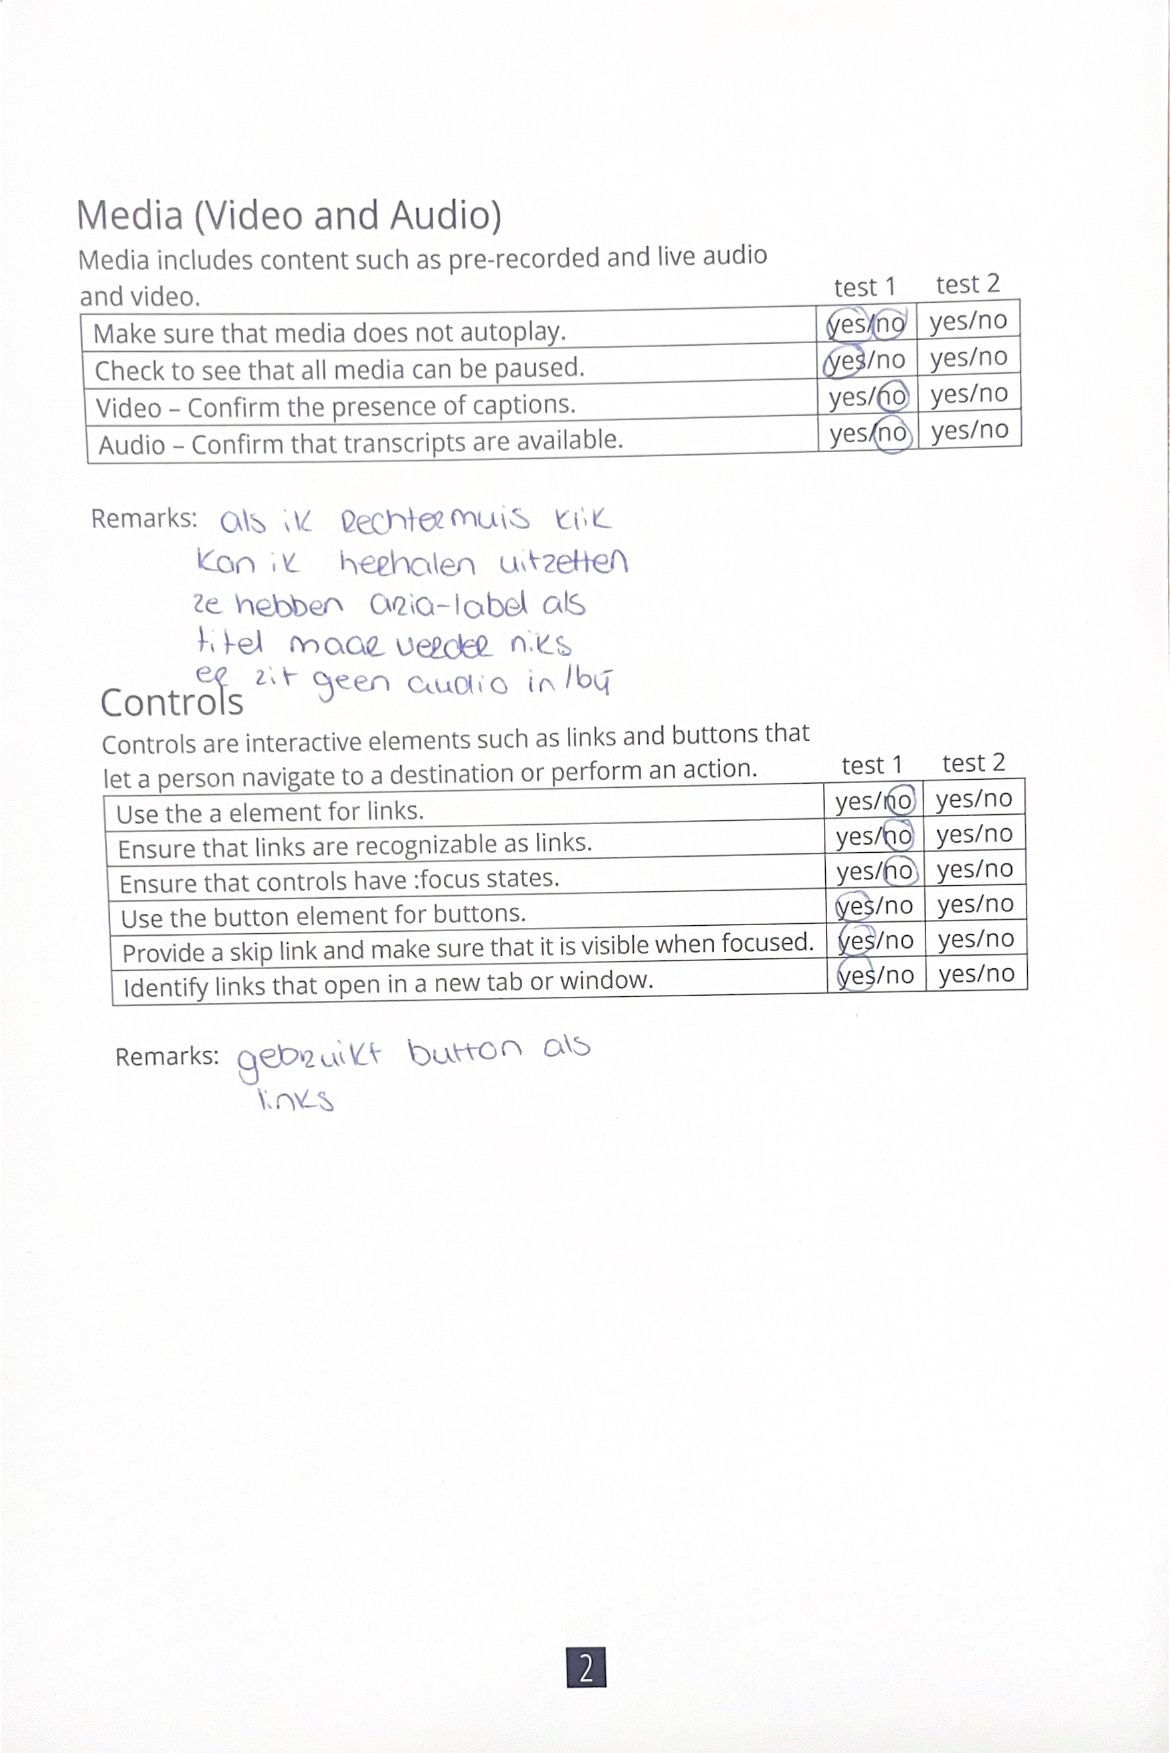 Media (Video and Audio)
Media includes content such as pre-recorded and live audio
and video. test 1 test 2
Make sure that media does not autoplay. yes/no yes/no
Check to see that all media can be paused. yes/no yes/no
Video – Confirm the presence of captions. yes/no yes/no
Audio – Confirm that transcripts are available. yes/no yes/no
Remarks: als ik Rechtermuis klik
kan ik herhalen uitzetten
ze hebben aria-label als
titel maar verder niks
er zit geen audio in/bij
Controls
Controls are interactive elements such as links and buttons that
let a person navigate to a destination or perform an action. test 1 test 2
Use the a element for links. yes/no yes/no
Ensure that links are recognizable as links. yes/no yes/no
Ensure that controls have :focus states. yes/no yes/no
Use the button element for buttons. yes/no yes/no
Provide a skip link and make sure that it is visible when focused. yes/no yes/no
Identify links that open in a new tab or window. yes/no yes/no
Remarks: gebruikt button als
links
2